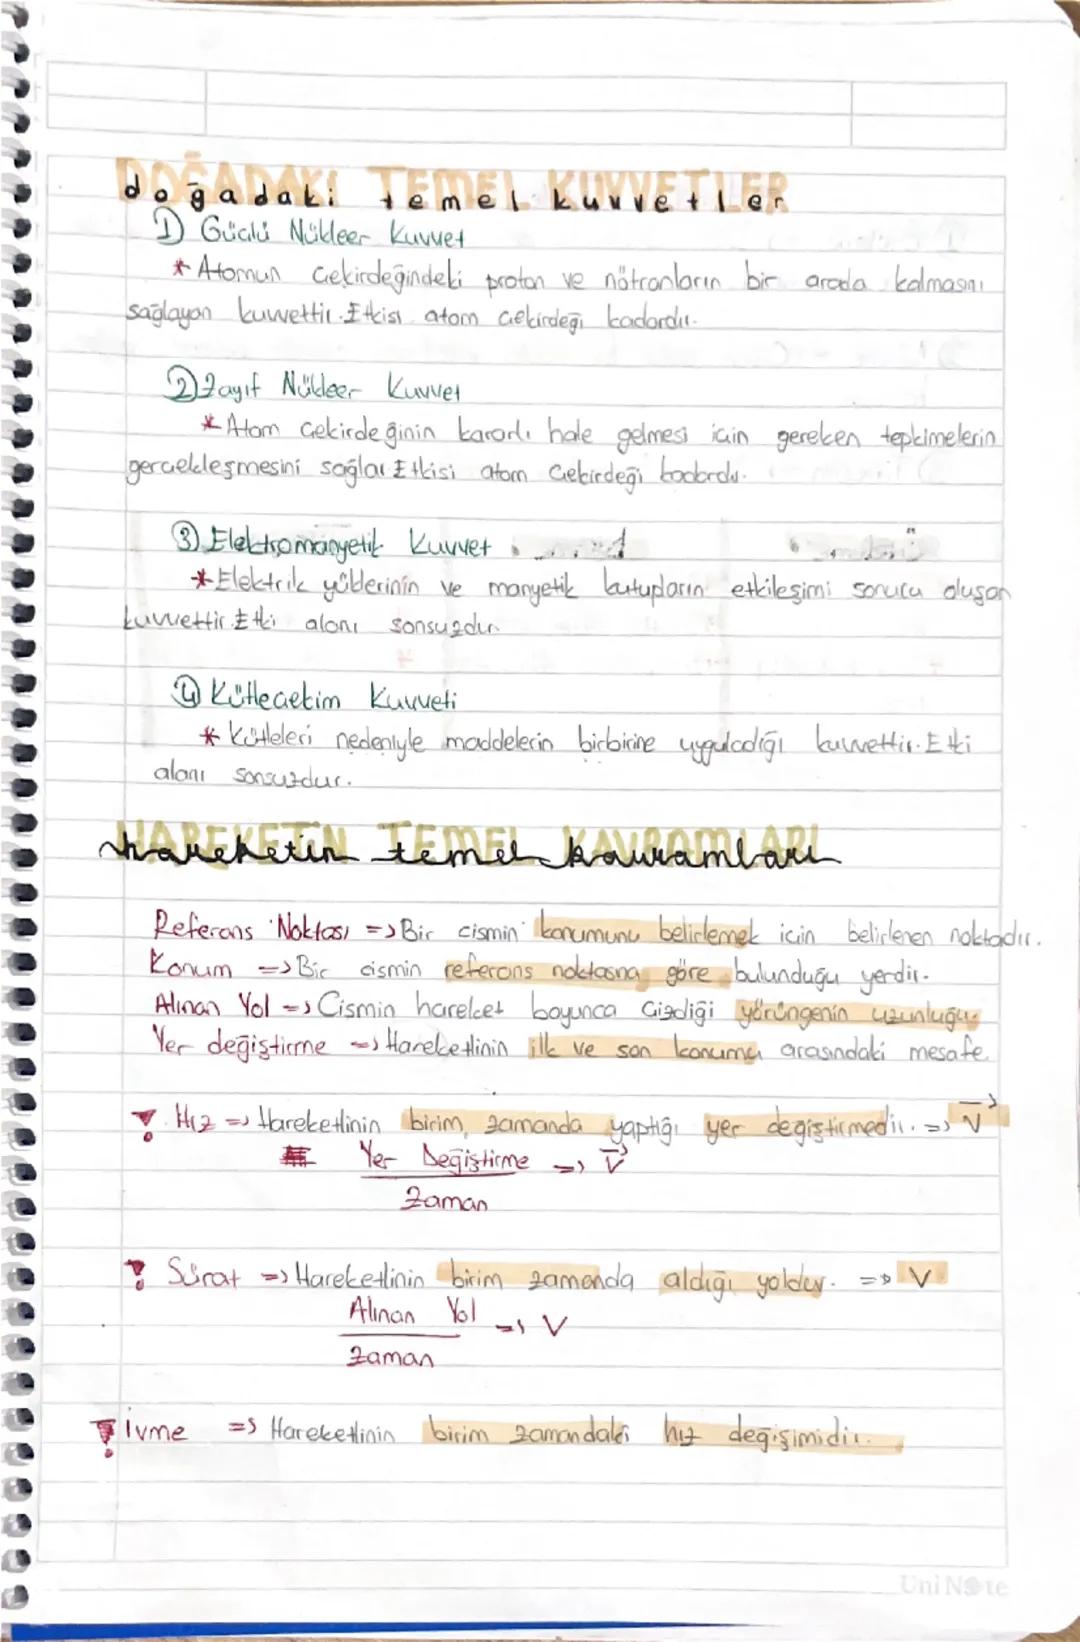 DOĞADAKİ TEMEL KUVVETLER
doğadaki temel kuvvetler
1) Güçlü Nükleer Kuvvet
* Atomun çekirdeğindeki proton ve nötronların bir arada kalmasını
sağlayan kuvvettir. Etkisi atom çekirdeği kadardır.
2) Zayıf Nükleer Kuvvet
* Atom çekirdeğinin kararlı hale gelmesi için gereken tepkimelerin
gerçekleşmesini sağlar. Etkisi atom çekirdeği kadardır.
3) Elektromanyetik Kuvvet
* Elektrik yüklerinin ve manyetik kutupların etkileşimi sonucu oluşan
kuvvettir. Etki alanı sonsuzdur.
4) Kütleçekim Kuvveti
* Kütleleri nedeniyle maddelerin birbirine uyguladığı kuvvettir. Etki
alanı sonsuzdur.
HAREKETİN TEMEL KAVRAMLARI
hareketin temel kavramları
Referans Noktası => Bir cismin konumunu belirlemek için belirlenen noktadır.
Konum => Bir cismin referans noktasına göre bulunduğu yerdir.
Alınan Yol => Cismin hareket boyunca çizdiği yörüngenin uzunluğu.
Yer değiştirme => Hareketlinin ilk ve son konumu arasındaki mesafe.
! Hız => Hareketlinin birim zamanda yaptığı yer değiştirmedir. => V⃗
Yer Değiştirme => V⃗
Zaman
! Sürat => Hareketlinin birim zamanda aldığı yoldur. => V
Alınan Yol => V
Zaman
! İvme => Hareketlinin birim zamandaki hız değişimidir.
UniNote